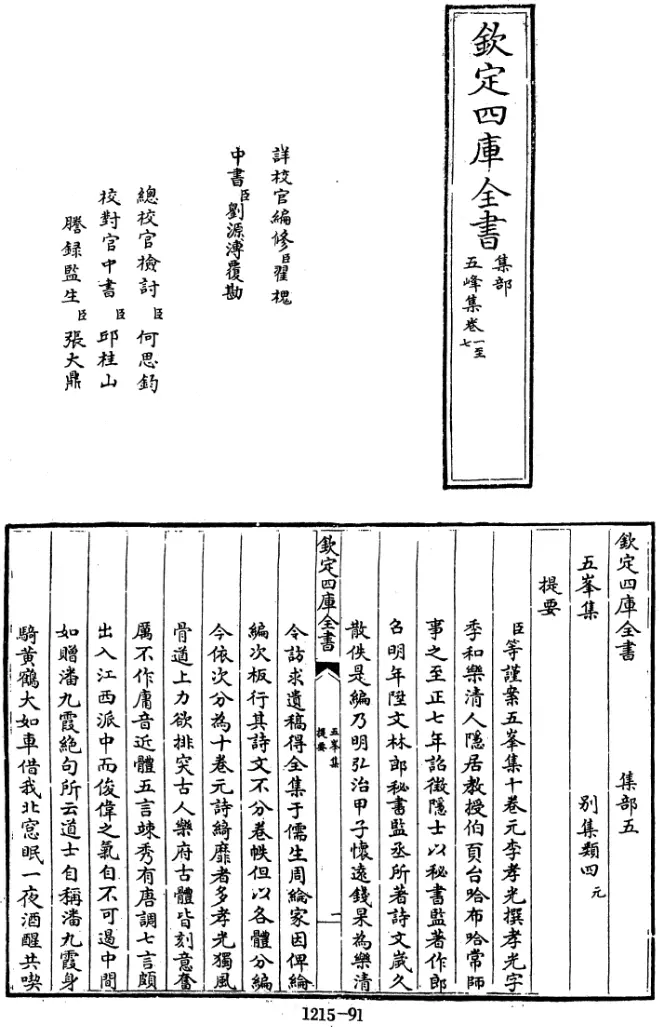 欽定四庫全書
集部
五峰集卷一至
七
詳校官編修臣翟槐
中書臣劉源溥覆勘
總校官檢討臣何思鈞
校對官中書臣邱桂山
謄錄監生臣張大鼎
欽定四庫全書 集部五
五峯集 別集類四元
提要
臣等謹案五峯集十卷元李孝光撰孝光字
季和樂清人隱居教授伯頁台哈布哈常師
事之至正七年詔徵隱士以秘書監著作郎
召明年陞文林郎秘書監丞所著詩文歲久
散佚是編乃明弘治甲子懷遠錢杲為樂清
欽定四庫全書
五峯集
提要
一
令訪求遺稿得全集于儒生周綸家因俾綸
編次板行其詩文不分卷帙但以各體分編
今依次分為十卷元詩綺靡者多孝光獨風
骨遒上力欲排突古人樂府古體皆刻意奮
厲不作庸音近體五言竦秀有唐調七言頗
出入江西派中而俊偉之氣自不可遏中間
如贈潘九霞絕句所云道士自稱潘九霞身
騎黃鶴大如車借我北窻眠一夜酒醒共喫
1215-91